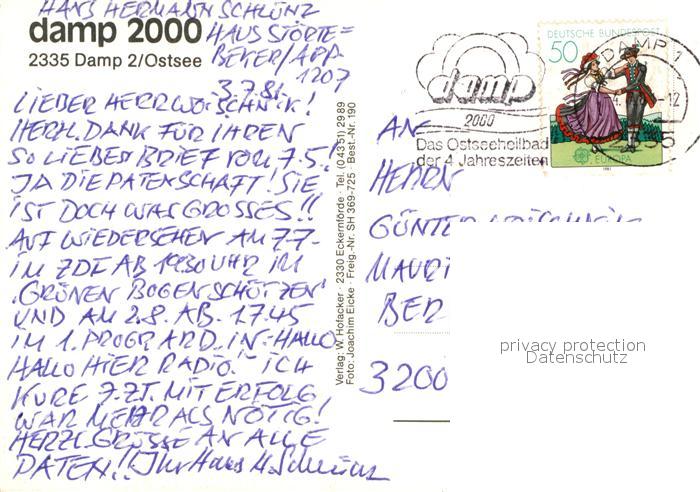 HANS HERMANN SCHLÜNZ
damp 2000
2335 Damp 2/Ostsee
HAUS STÖRTE=
BEKER/APP
1207
3.7.81.
LIEBER HERR WOISCHNIK!
HERZL. DANK FÜR IHREN
SO LIEBEN BRIEF VOM 7.5.!
JA DIE PATENSCHAFT! SIE
IST DOCH WAS GROSSES!!
AUF WIEDERSEHEN AM 7.7.
IM ZDF AB 1930 UHR IM
"GRÜNEN BOGENSCHÜTZEN"
UND AM 2.8. AB. 17.45
IM 1. PROGR ARD. IN: HALLO
HALLO HIER RADIO." ICH
KURE Z.ZT. MIT ERFOLG
WAR MEHR ALS NÖTIG!
HERZL. GRÜSSE AN ALLE
PATEN!! Ihr Hans H. Schlünz
Verlag: W. Hofacker · 2330 Eckernförde · Tel. (0 43 51) 29 89
Foto: Joachim Eicke · Freig.-Nr. SH 369-725 · Best.-Nr. 190
damp
2000
Das Ostseeheilbad
der 4 Jahreszeiten
DEUTSCHE BUNDESPOST
50
EUROPA
1981
DAMP 1
-12
AN
HERRN
GÜNTER
MAURI
BER
3200
privacy protection
Datenschutz